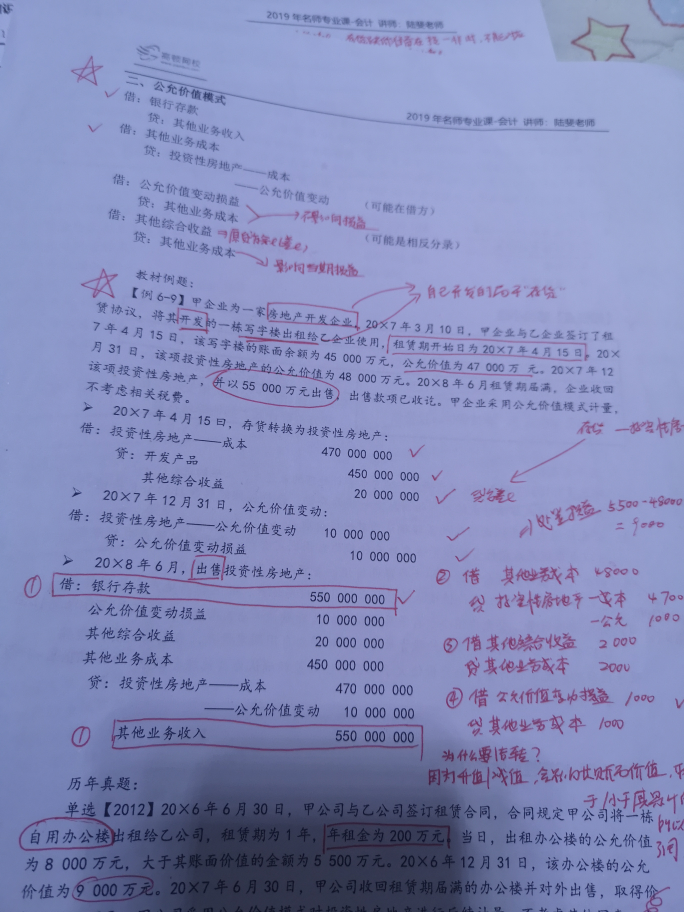 2019 年名师专业课-会计 讲师: 陆斐老师
2019 年名师专业课-会计 讲师: 陆斐老师
三、公允价值模式
借: 银行存款
贷: 其他业务收入
借: 其他业务成本
贷: 投资性房地产——成本
——公允价值变动
借: 公允价值变动损益 (可能在借方)
贷: 其他业务成本
借: 其他综合收益 (可能是相反分录)
贷: 其他业务成本
教材例题:
【例 6-9】甲企业为一家房地产开发企业。20×7 年 3 月 10 日, 甲企业与乙企业签订了租
赁协议, 将其开发的一栋写字楼出租给乙企业使用, 租赁期开始日为 20×7 年 4 月 15 日。20×
7 年 4 月 15 日, 该写字楼的账面余额为 45 000 万元, 公允价值为 47 000 万元。20×7 年 12
月 31 日, 该项投资性房地产的公允价值为 48 000 万元。20×8 年 6 月租赁期届满, 企业收回
该项投资性房地产, 并以 55 000 万元出售, 出售款项已收讫。甲企业采用公允价值模式计量,
不考虑相关税费。
自己开发的属于"存货"
➢ 20×7 年 4 月 15 日, 存货转换为投资性房地产:
借: 投资性房地产——成本 470 000 000
贷: 开发产品 450 000 000
其他综合收益 20 000 000
➢ 20×7 年 12 月 31 日, 公允价值变动:
借: 投资性房地产——公允价值变动 10 000 000
贷: 公允价值变动损益 10 000 000
➢ 20×8 年 6 月, 出售投资性房地产:
① 借: 银行存款 550 000 000
公允价值变动损益 10 000 000
其他综合收益 20 000 000
其他业务成本 450 000 000
贷: 投资性房地产——成本 470 000 000
——公允价值变动 10 000 000
① 其他业务收入 550 000 000
处置损益 5500-48000
= 9000
② 借 其他业务成本 48000
贷 投资性房地产 —成本 4700
—公允 1000
③ 借 其他综合收益 2000
贷 其他业务成本 2000
④ 借 公允价值变动损益 1000
贷 其他业务成本 1000
为什么要结转?
历年真题:
单选【2012】20×6 年 6 月 30 日, 甲公司与乙公司签订租赁合同, 合同规定甲公司将一栋
自用办公楼出租给乙公司, 租赁期为 1 年, 年租金为 200 万元。当日, 出租办公楼的公允价值
为 8 000 万元, 大于其账面价值的金额为 5 500 万元。20×6 年 12 月 31 日, 该办公楼的公允
价值为 9 000 万元。20×7 年 6 月 30 日, 甲公司收回租赁期届满的办公楼并对外出售, 取得价